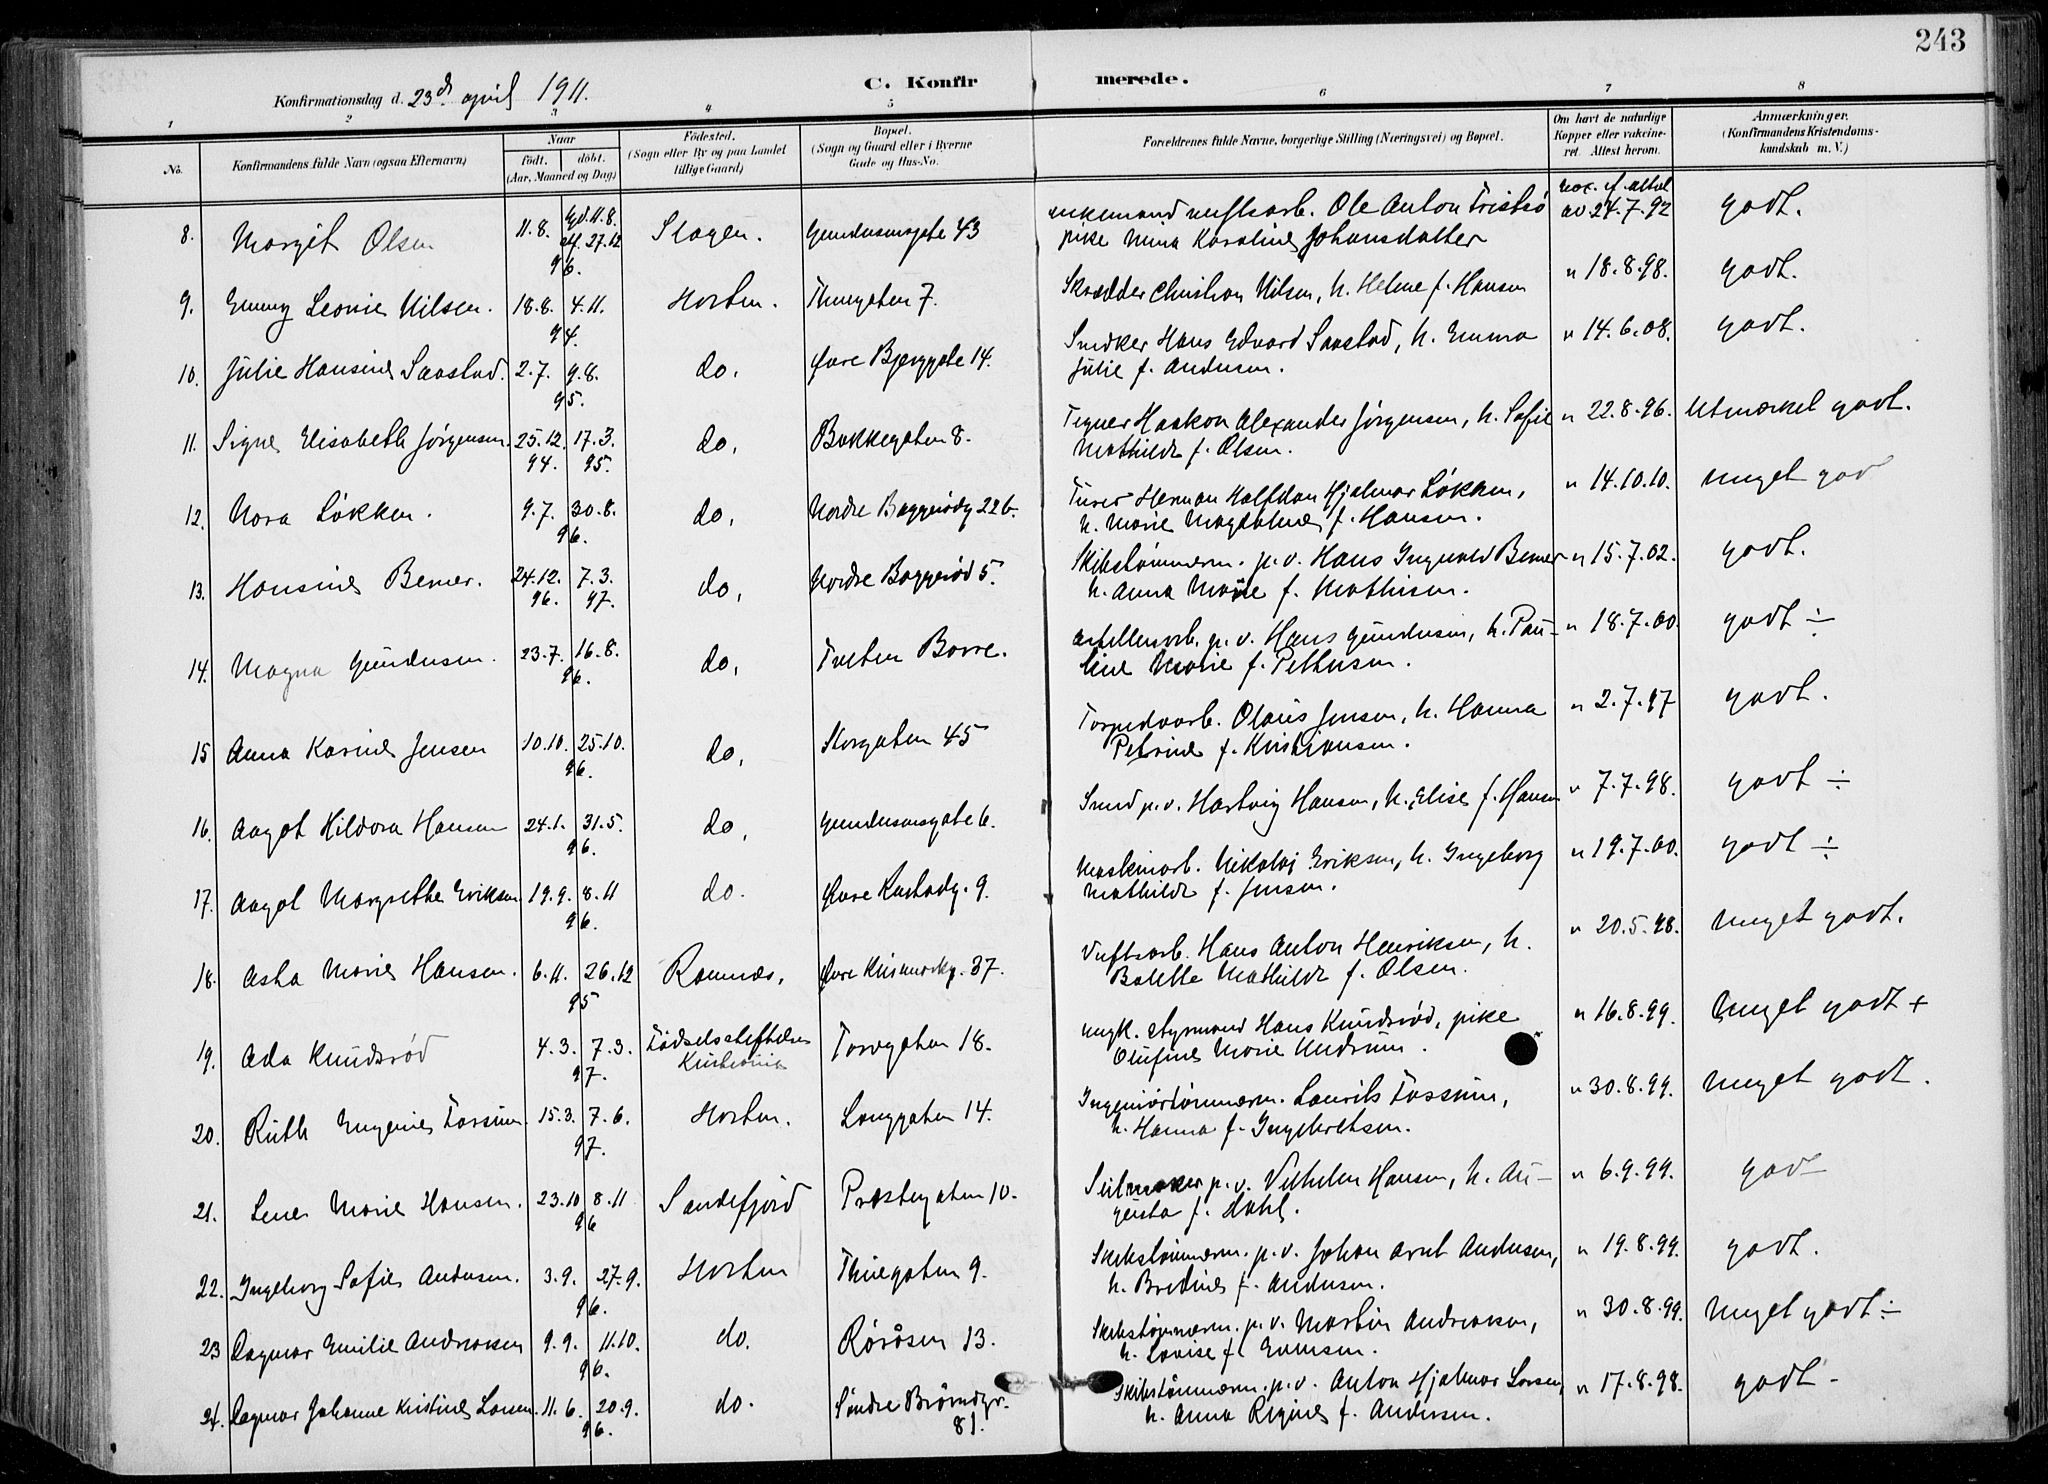 243
C. Konfirmerede.
Konfirmationsdag d. 23d. april 1911.
1 2 3 4 5 6 7 8
No.
Konfirmandens fulde Navn (ogsaa Efternavn)
Naar
født. døbt.
(Aar, Maaned og Dag)
Fødested.
(Sogn eller By og paa Landet
tillige Gaard)
Bopæl.
(Sogn og Gaard eller i Byerne
Gade og Hus-No.
Forældrenes fulde Navne, borgerlige Stilling (Næringsvei) og Bopæl.
Om havt de naturlige
Kopper eller vakcine-
ret. Attest herom.
Anmærkninger.
(Konfirmandens Kristendoms-
kundskab m. V.)
8. Margit Olsen 11.8. 27.12 96. Slagen. Gundersensgate 43 enkemand verftsarb. Ole Anton av 24.7.92 godt.
pike Mina Karoline Johansdatter
9. Emmy Leonie Nilsen. 18.8. 4.11. 94. Horten. Thuegaten 7. Skrædder Christian Nilsen, h. Helene f. Hansen " 18.8.98. godt.
10. Julie Hansine Saastad. 2.7. 9.8. 95. do. Øvre Bjerggate 14. Snedker Hans Edvard Saastad, h. Emma " 14.6.08. godt.
Julie f. Andersen.
11. Signe Elisabeth Jørgensen. 25.12. 94. 17.3. 95. do. Bakkegaten 8. Tegner Haakon Alexander Jørgensen, h. Sofie " 22.8.96. Utmærket godt.
Mathilde f. Olsen.
12. Nora Løkken. 9.7. 30.8. 96. do. Nordre Baggerødg 22 b. Herman Halfdan Hjalmar Løkken, " 14.10.10. meget god
h. Marie Magdalene f. Hansen.
13. Hansine Bemer. 24.12. 96. 7.3. 97. do. Nordre Baggerød 5. Skibstømmerm. p.v. Hans Ingvald Bemer " 15.7.02. godt.
h. Anna Marie f. Mathisen.
14. Magna Gundersen. 23.7. 16.8. 96. do. Tveten Borre. Artilleriarb. p.v. Hans Gundersen, h. Pau- " 18.7.00. godt ÷
line Marie f. Pettersen.
15 Anna Karine Jensen 10.10. 25.10. 96. do. Storgaten 45 Torpedoarb. Olaus Jensen, h. Hanna " 2.7.97 godt.
Petrine f. Kristiansen.
16. Aagot Hildora Hansen 24.1. 31.5. 96. do. Gundersensgate 6. Smed p.v. Hartvig Hansen, h. Elise f. Hansen " 7.7.98. godt ÷
17. Aagot Margrethe Eriksen 19.9. 8.11 96. do. Øvre Keisemarkg. 9. Maskinarb. Nikolai Eriksen, h. Ingeborg " 19.7.00. godt ÷
Mathilde f. Jensen.
18. Asta Marie Hansen. 6.11. 26.12 95 Ramnes. Øvre Keisemarkg. 37. Verftsarb. Hans Anton Henriksen, h. " 20.5.98. meget godt.
Bolette Mathilde f. Olsen.
19. Ada Knudsrød 4.3. 7.3. 97. Fødselsstiftelsen Torvgaten 18. ungk. Styrmand Hans Knudsrød, pike " 16.8.99. meget godt +
Kristiania Olufine Marie Undrum.
20. Ruth Eugenie Fossum. 15.3. 7.6. 97. Horten. Langgaten 14. Ingeniørtømmerm. Laurits Fossum, " 30.8.99. meget godt.
h. Hanna f. Ingebretsen.
21. Lene Marie Hansen. 23.10 8.11 96 Sandefjord Prestegaten 10. Seilmaker p.v. Vilhelm Hansen, h. Au- " 6.9.99. godt
gusta f. Dahl.
22. Ingeborg Sofie Andersen. 3.9. 27.9. 96. Horten Thuegaten 9. Skibstømmerm. p.v. Johan Arnt Andersen, " 19.8.99. godt.
h. Bredine f. Andersen.
23 Dagmar Emilie Andreasen 9.9. 11.10. 96. do. Røråsen 13. Skibstømmerm. p.v. Martin Andreasen, " 30.8.99. meget godt ÷
h. Lovise f. Evensen.
24. Dagmar Johanne Kristine Larsen. 11.6. 20.9. 96. do. Søndre Brårudgr. Skibstømmerm. p.v. Anton Hjalmar Larsen, " 17.8.98. godt -
81. h. Anna Regine f. Andersen.